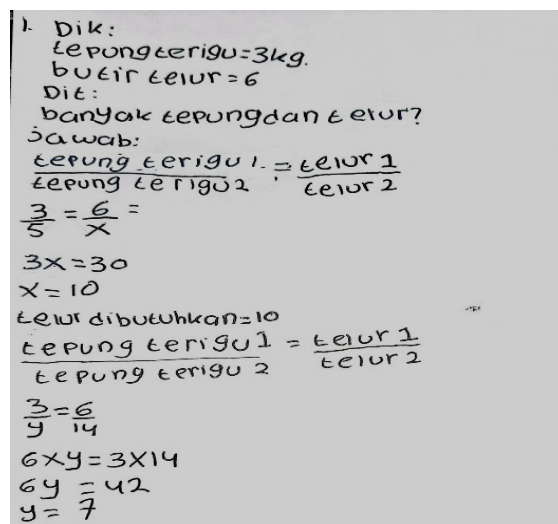 1. Dik:
tepung terigu=3kg.
butir telur=6
Dit:
banyak tepung dan telur?
jawab:
tepung terigu 1 = telur 1
tepung terigu 2 telur 2
3 = 6 =
5 x
3x=30
x=10
telur dibutuhkan=10
tepung terigu 1 = telur 1
tepung terigu 2 telur 2
3 = 6
y 14
6xy=3x14
6y = 42
y= 7